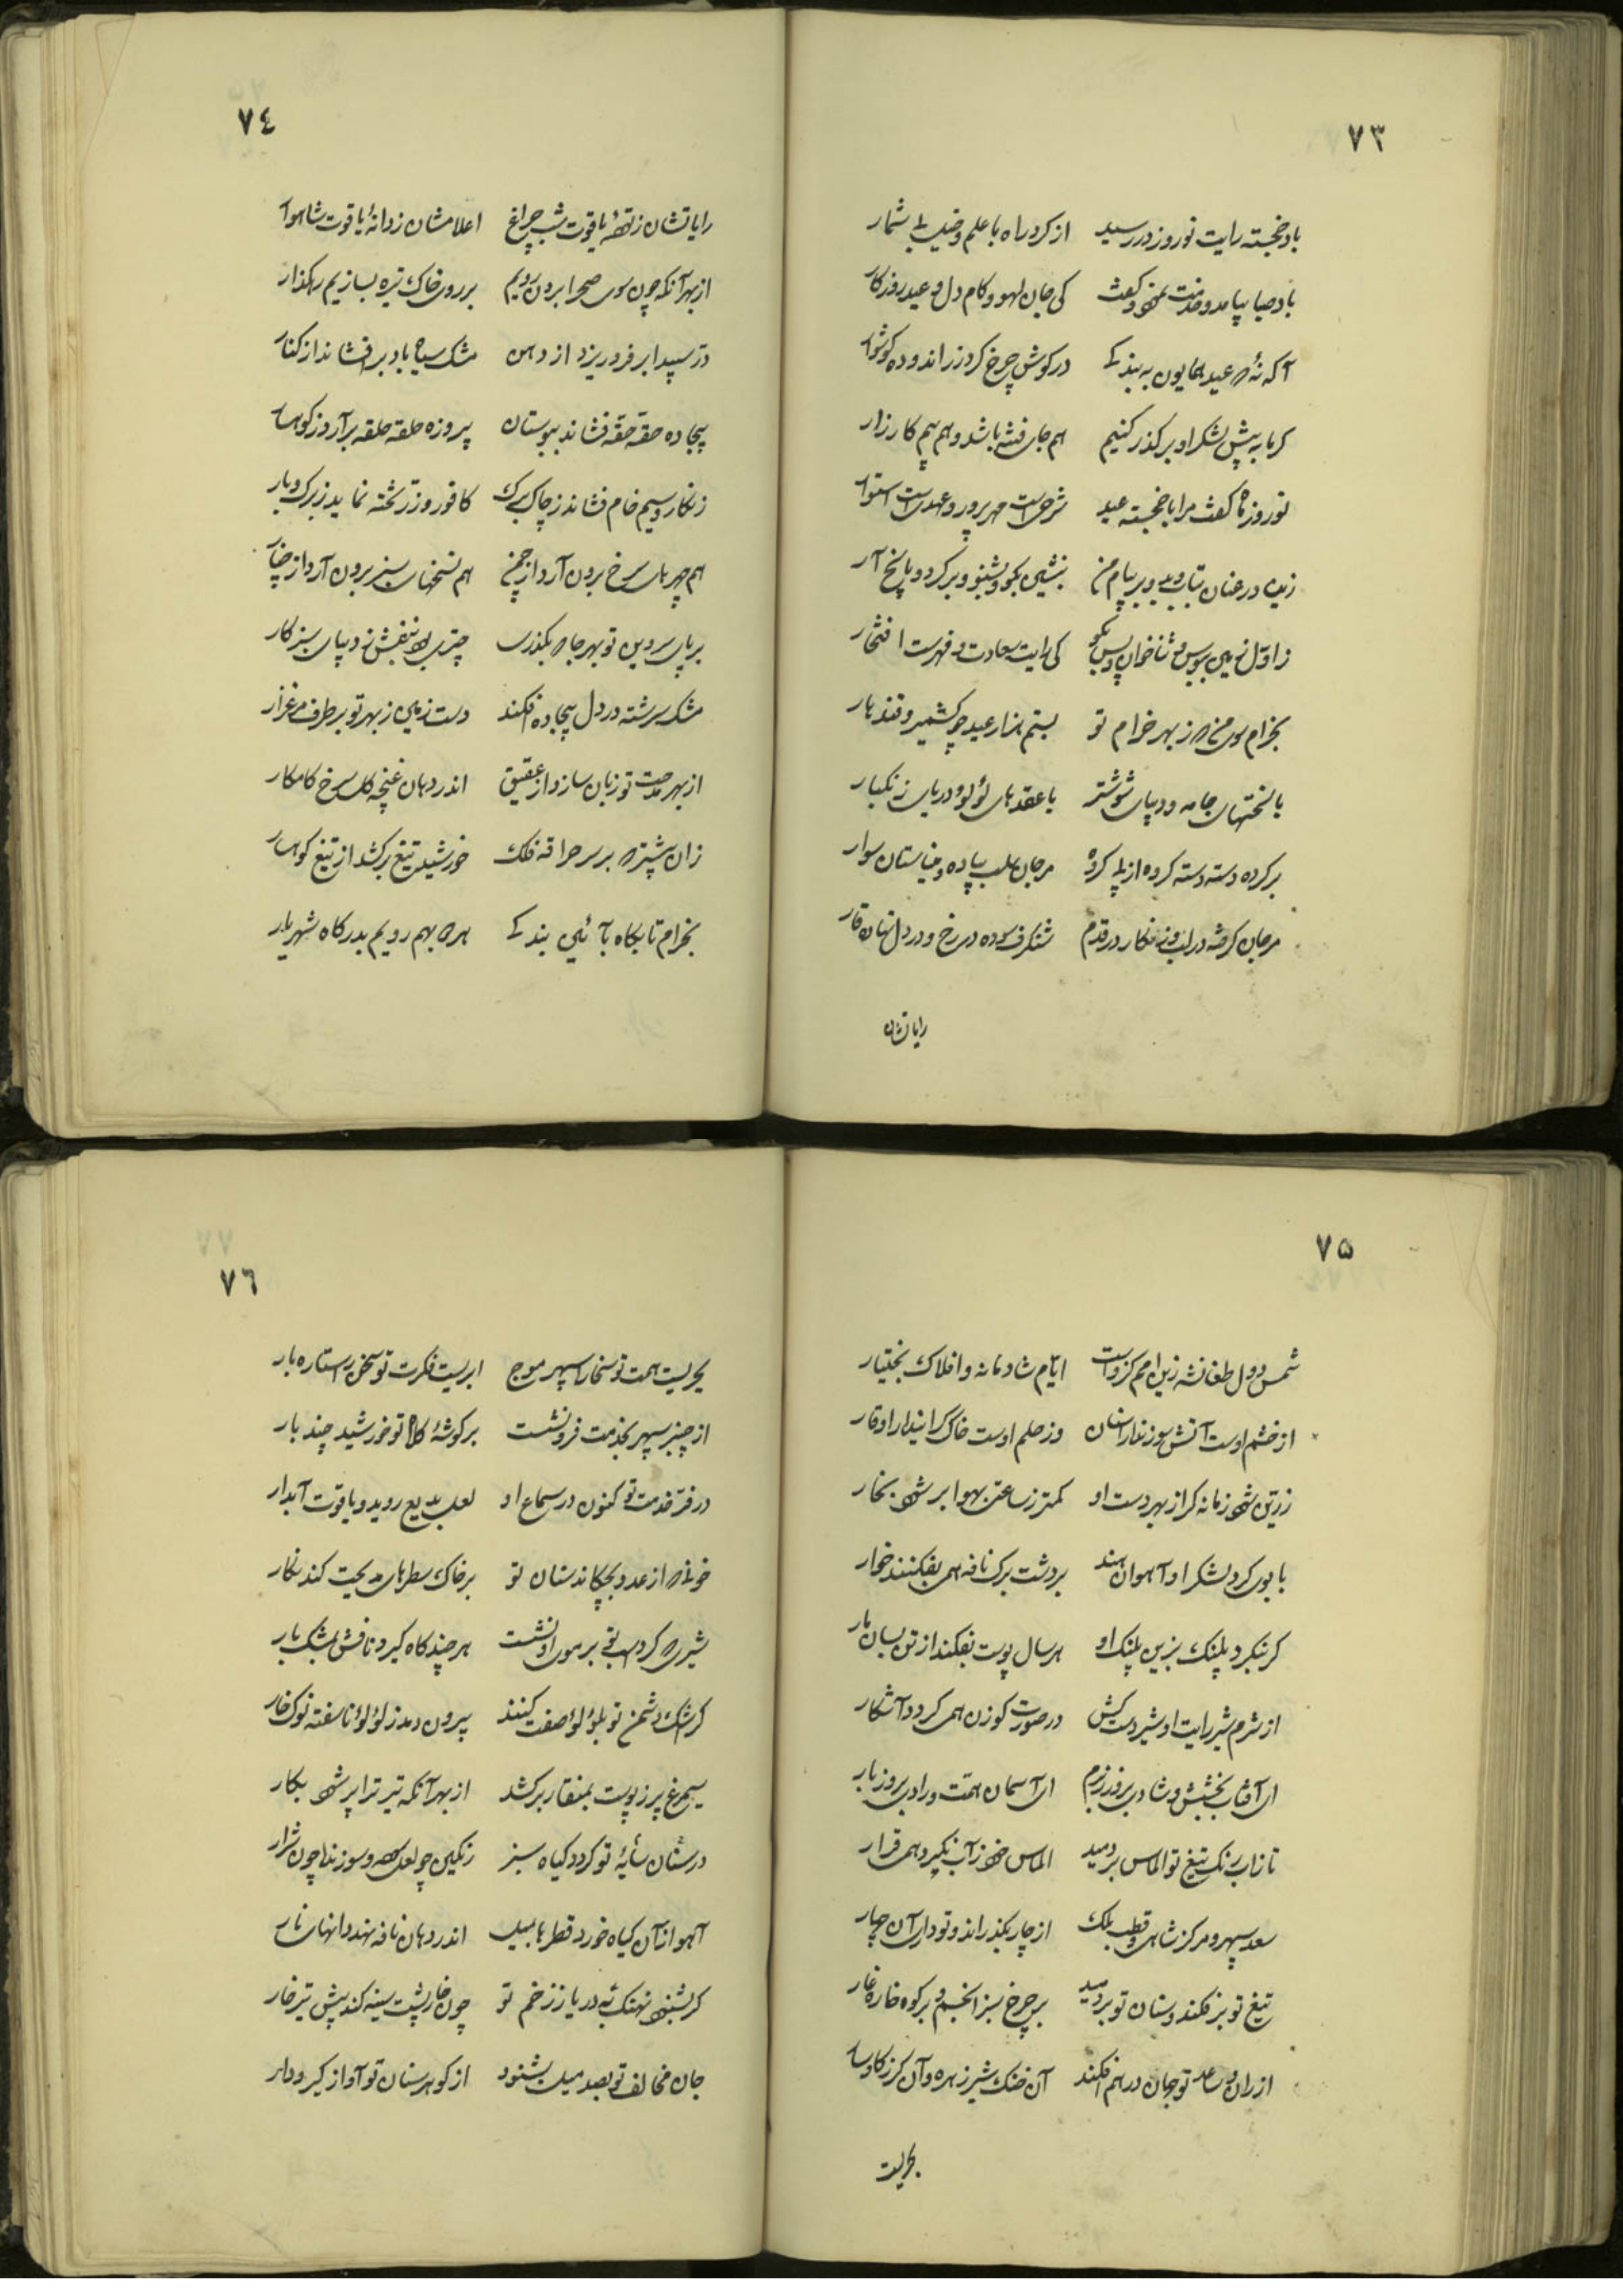 ٧٣
باد خجسته رایت نوروز در رسید از گرد راه با علم و خیل بی شمار
باد صبا بیامد و خدمت نمود و گفت کی جان لهو و کام دل و عید روزگار
آگه نهٔ که عید همایون به بندگی در گوش چرخ کرد زر اندوده گوشوار
گر ما به پیش لشکر او بر گذر کنیم هم جای فتنه باشد و هم بیم کارزار
نوروز ماه گفت مرا با خجسته عید شرحیست مهرپرور و عهدیست استوار
زین در عنان بتاب و ببر پیام من بنشین بگو و بشنو و برگرد و پاسخ آر
ز اول زمین ببوس و ثنا خوان و پس بگو کی رایت سعادت و فهرست افتخار
بخرام سوی من که ز بهر خرام تو بستم هزار عید چو کشمیر و قندهار
با تختهای جامه و دیبای شوشتر با عقدهای لؤلؤ دریای زنگبار
بر کرده دسته دسته کرده از پی مرجان سلب پیاده و میناستان سوار
مرجان گرفته در لب و زنگار در قدم شنگرف سوده در رخ و در دل نهان قار
رایاتشان
٧٤
رایاتشان ز تحفهٔ یاقوت شب چراغ اعلامشان ز دانهٔ یاقوت شاهوار
از بهر آنکه چون سوی صحرا برون رویم بر روی خاک تیره بسازیم رهگذار
در سپید ابر فرو ریزد از دهن مشک سیاه باد برافشاند از کنار
بیجاده حقه حقه فشاند ببوستان پیروزه حلقه حلقه برآرد ز کوهسار
زنگار و سیم خام فشاند ز چاک برگ کافور و زر پخته نماید ز برگ و بار
هم چهرهای سرخ برون آرد از چمن هم نسختهای سبز برون آرد از چنار
بر پای سرو بن تو بهر جا که بگذری چتری بود بنفش ز دیبای سبز کار
مشک سرشته در دل بیجاده افکند دست زمین ز بهر تو بر طرف مرغزار
از بهر مدحت تو زبان سازد از عقیق اندر دهان غنچه گل سرخ کامکار
زان پیشتر که بر سر حراقه فلک خورشید تیغ برکشد از تیغ کوهسار
بخرام تا پگاه بآئین بندگی هر دو بهم رویم بدرگاه شهریار
٧۵
شمس دول طغانشه زین امم کزوست ایام شادمانه و افلاک بختیار
از خشم اوست آتش سوزنده را سنان وز حلم اوست خاک گراینده را وقار
زرین شود زمانه گر از بهر دست او کمتر ز ساعتی بهوا بر شود بخار
با بوی گرد لشکر او آهوان هند بر دشت برگ نافه همی بفکنند خوار
گر بنگرد پلنگ بزین پلنگ او هر سال پوست بفکند از تن بسان مار
از شرم شیر رایت او شیر دست کش در صورت گوزن همی گردد آشکار
ای آفتاب بخشش و شادی بروز بزم ای آسمان همت و رادی بروز بار
تا زاب رنگ تیغ تو الماس بردمید الماس خود ز آب نگیرد همی قرار
سعد سپهر و مرکز شاهی و قطب ملک از چار بگذراند و تو داری آن چهار
تیغ تو برفکند و سنان تو بردمید بر چرخ سبز انجم و بر کوه خاره غار
از ران و ساعد تو جهان در هم افکند آن خنگ شیر زهره و آن گرز گاوسار
بحریست
٧٦
بحریست همت تو سخا را سپهر موج ابریست فکرت تو سخن را ستاره بار
از چنبر سپهر بخدمت فرو نشست بر گوشهٔ کلاه تو خورشید چند بار
در فر خدمت تو کنون در سماع او لعل بدیع روید و یاقوت آبدار
خونی که از عدو بچکاند سنان تو بر خاک سطرهای مدیحت کند نگار
شیری که گرد تو بر موی او نشست هر چند گاه گیرد نافش بمشک بار
گر اشک دشمن تو بلؤلؤ صفت کنند بیرون دمد ز لؤلؤ ناسفته نوک خار
سیمرغ پر ز پوست بمنقار برکشد از بهر آنکه تیر ترا پر شود بکار
درستان سایهٔ تو گردد گیاه سبز رنگین چو لعل و سوزنده چون شرار
آهو از آن گیاه خورد قطرها بمیل اندر دهان نافه نهد دانهای نار
گر بشنود نهنگ بدریا ز زخم تو چون خارپشت سینه کند پیش تیر خار
جان مخالف تو بصد میل بشنود از گوهر سنان تو آواز گیر و دار